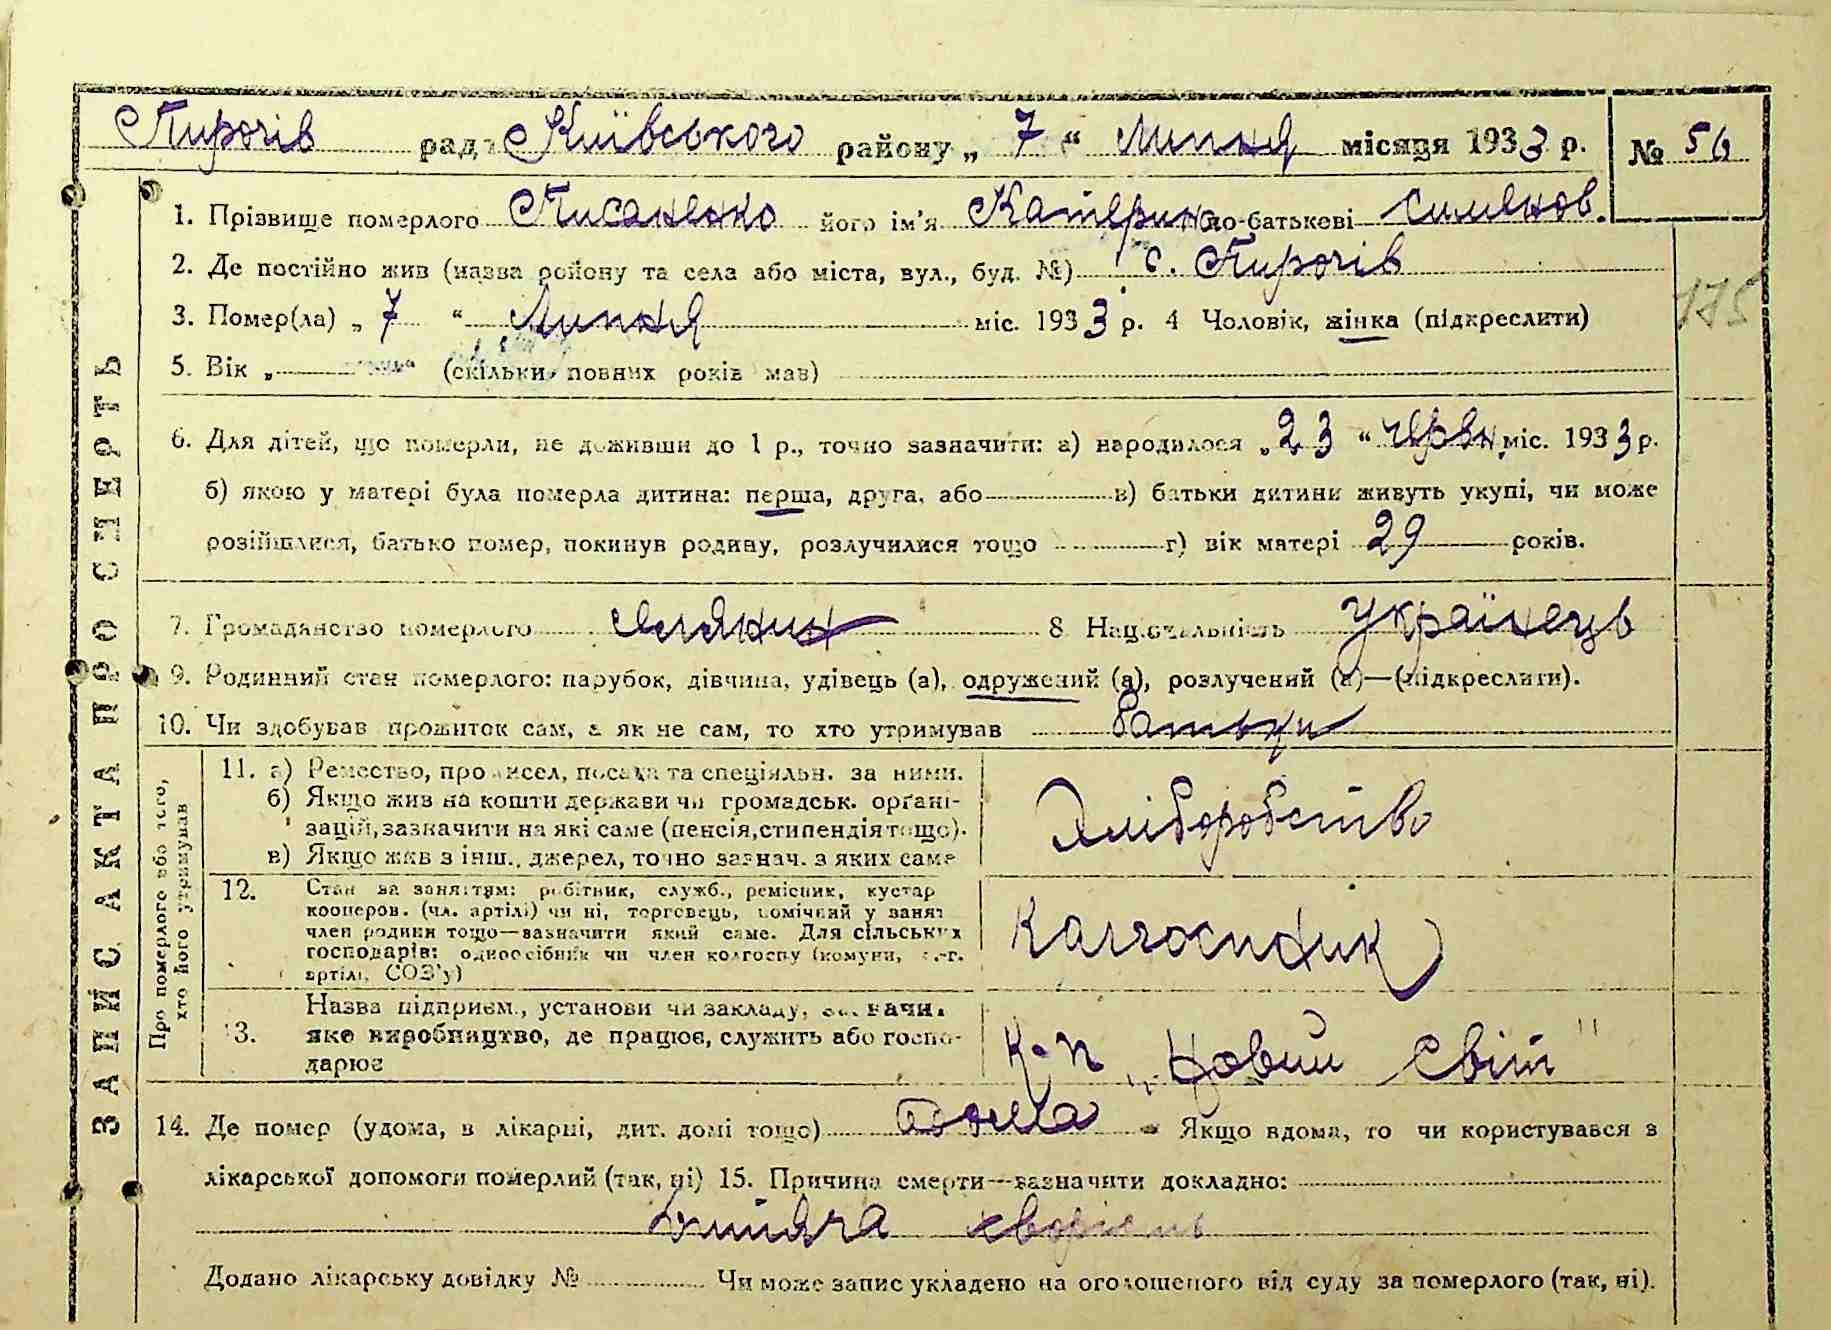 Пирогів рад Київського району „ 7 “ Липня місяця 1933 р. № 56
1. Прізвище померлого Писаненко його ім'я Катерина по-батькові Сименов.
2. Де постійно жив (назва району та села або міста, вул., буд. №) с. Пирогів
3. Помер(ла) „ 7 “ Липня міс. 1933 р. 4 Чоловік, жінка (підкреслити)
175
5. Вік „ “ (скільки повних років мав)
6. Для дітей, що померли, не доживши до 1 р., точно зазначити: а) народилося „ 23 “ червн. міс. 1933 р.
б) якою у матері була померла дитина: перша, друга, або в) батьки дитини живуть укупі, чи може
розійшлися, батько помер, покинув родину, розлучилися тощо г) вік матері 29 років.
7. Громадянство померлого селянин 8 Національність Українець
9. Родинний стан померлого: парубок, дівчина, удівець (а), одружений (а), розлучений (а)—(підкреслити).
10. Чи здобував прожиток сам, а як не сам, то хто утримував батьки
ЗАПИС АКТА ПРО СМЕРТЬ
Про померлого або того, хто його утримував
11. а) Ремество, промисел, посада та спеціяльн. за ними.
б) Якщо жив на кошти держави чи громадськ. органі-
зацій, зазначити на які саме (пенсія, стипендія тощо).
в) Якщо жив з інш., джерел, точно зазнач. з яких саме
Хліборобство
12. Стан за заняттям: робітник, служб., ремісник, кустар
кооперов. (чл. артілі) чи ні, торговець, помічний у занят
член родини тощо—зазначити який саме. Для сільських
господарів: одноосібник чи член колгоспу (комуни, с.-г.
артілі, СОЗ'у)
Колгоспник
13. Назва підприєм., установи чи закладу, зазначи.
яке виробництво, де працює, служить або госпо-
дарює
к-п „Новий світ"
14. Де помер (удома, в лікарні, дит. домі тощо) Дома Якщо вдома, то чи користувався з
лікарської допомоги померлий (так, ні) 15. Причина смерти—зазначити докладно:
Дитяча хворість
Додано лікарську довідку № Чи може запис укладено на оголошеного від суду за померлого (так, ні).